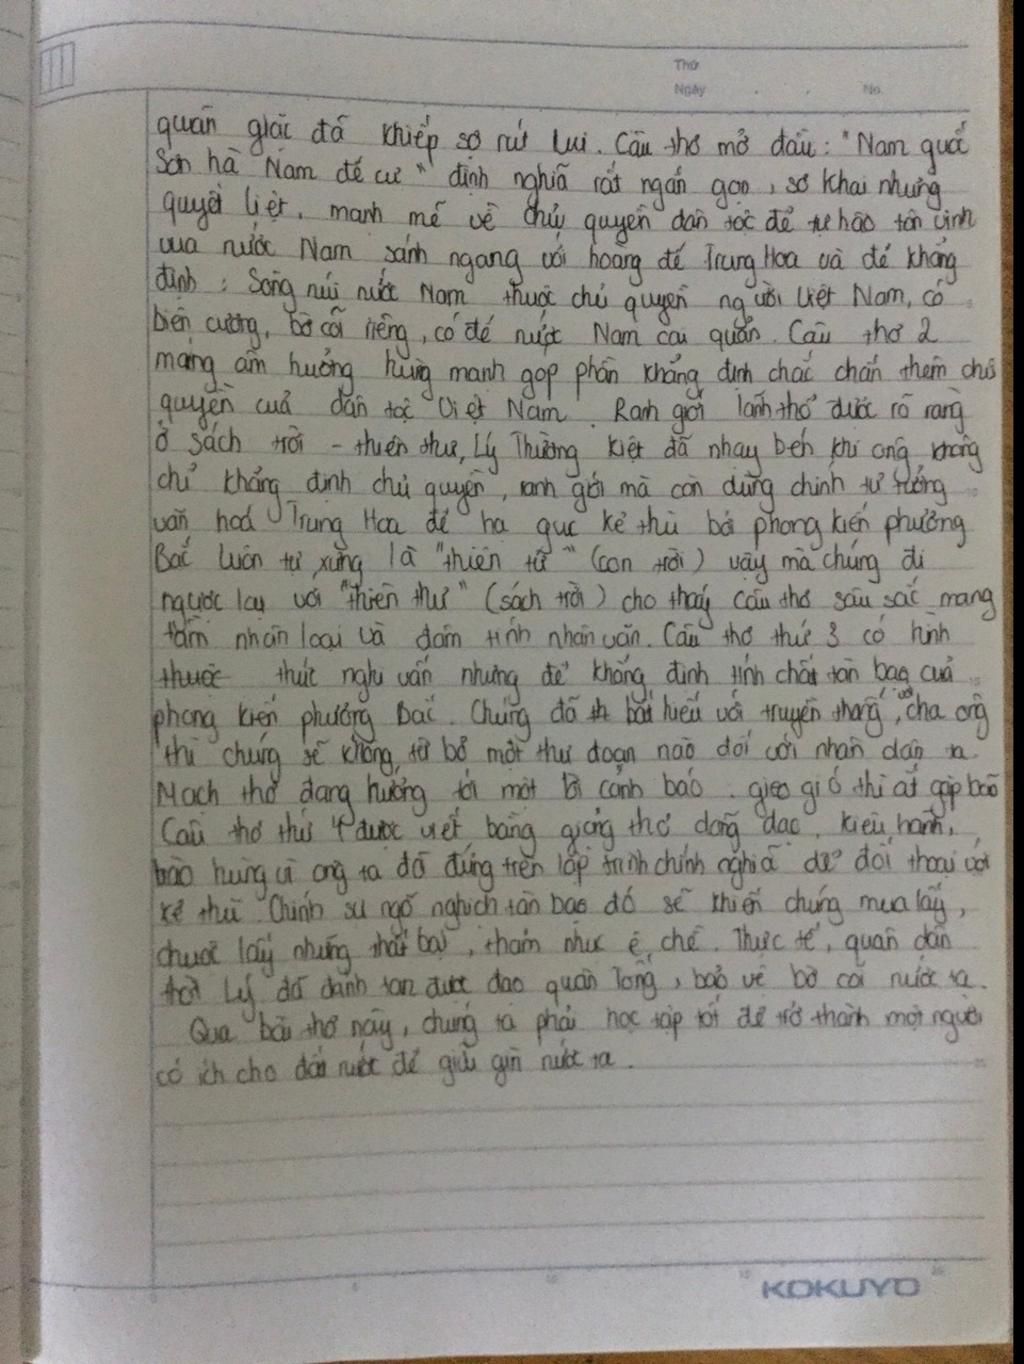 Thứ
Ngày . . No.
quân giặc đã khiếp sợ rút lui. Câu thơ mở đầu: "Nam quốc
Sơn hà Nam đế cư" định nghĩa rất ngắn gọn, sơ khai nhưng
quyết liệt, mạnh mẽ về chủ quyền dân tộc để tự hào tôn vinh
vua nước Nam sánh ngang với hoàng đế Trung Hoa và để khẳng
định: Sông núi nước Nam thuộc chủ quyền người Việt Nam, có
biên cương, bờ cõi riêng, có đế nước Nam cai quản. Câu thơ 2
mang âm hưởng hùng mạnh góp phần khẳng định chắc chắn thêm chủ
quyền của dân tộc Việt Nam. Ranh giới lãnh thổ được rõ ràng
ở sách trời - thiên thư, Lý Thường Kiệt đã nhạy bén khi ông không
chỉ khẳng định chủ quyền, ranh giới mà còn dùng chính tư tưởng
văn hoá Trung Hoa để hạ gục kẻ thù bởi phong kiến phương
Bắc luôn tự xưng là "thiên tử" (con trời) vậy mà chúng đi
ngược lại với "thiên thư" (sách trời) cho thấy câu thơ sâu sắc mang
tầm nhân loại và đậm tính nhân văn. Câu thơ thứ 3 có hình
thuộc thức nghi vấn nhưng để khẳng định tính chất tàn bạo của
phong kiến phương Bắc. Chúng đã th bất hiếu với truyền thống, với cha ông
thì chúng sẽ không từ bỏ một thủ đoạn nào đối với nhân dân ta.
Mạch thơ đang hướng tới một lời cảnh báo: gieo gió thì ắt gặp bão
Câu thơ thứ 4 được viết bằng giọng thơ dõng dạc, kiêu hãnh,
hào hùng vì ông ta đã đứng trên lập trình chính nghĩa để đối thoại với
kẻ thù. Chính sự ngỗ nghịch tàn bạo đó sẽ khiến chúng mua lấy,
chuốc lấy những thất bại, thảm như ê chề. Thực tế, quân dân
thời Lý đã đánh tan được đạo quân Tống, bảo vệ bờ cõi nước ta.
Qua bài thơ này, chúng ta phải học tập tốt để trở thành một người
có ích cho đất nước để giữ gìn nước ta.
KOKUYO